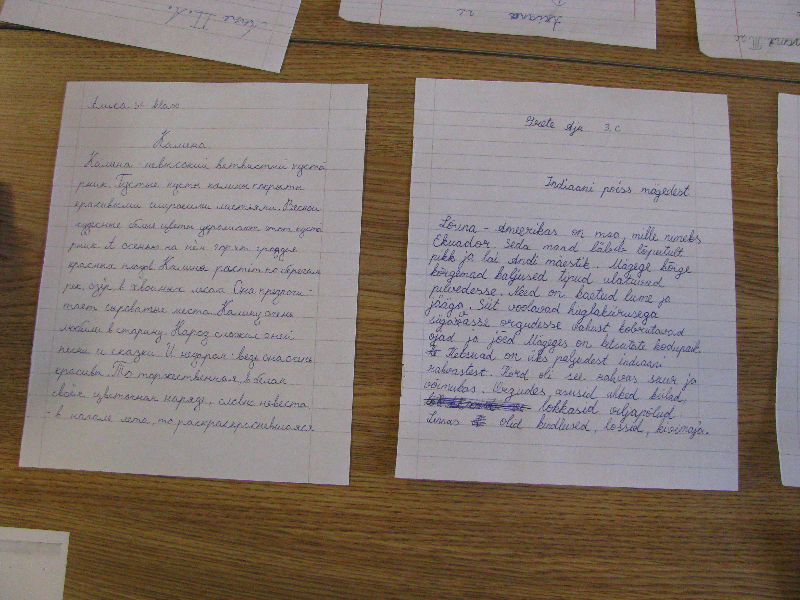 Калина
Калина невысокий ветвистый куста
рник. Густые кусты калины покрыты
красивыми широкими листьями. Весной
чудесные белые цветы украшают этот куста
рник. А осенью на нём горят гроздья
красных плодов. Калина растёт по берегам
рек, озёр, в хвойных лесах. Она предпочи-
тает сыроватые места. Калину очень
любили в старину. Народ сложил о ней
песни и сказки. И недаром: ведь она очень
красива. То торжественная, в белом
своём цветочном наряде, словно невеста
- в начале лета, то раскрасневшаяся
Grete Aju 3.c
Indiaani poiss mägedest
Lõuna - Ameerikas on maa, mille nimeks
Ekuador. Seda maad läbib lõputult
pikk ja lai Andi mäestik. Mägede kõrge
kõrgemad kaljused tipud ulatuvad
pilvedesse. Need on kaetud lume ja
jääga. Siit voolavad hiiglakiirusega
sügavasse orgudesse vahust kobrutavad
ojad ja jõed. Mägedes on ketsuate kodupaik.
Ketsuad on üks paljudest indiaani
rahvastest. Kord oli see rahvas suur ja
võimukas. Orgudes asusid uhked külad,
lokkasid viljapõllud.
Linnas olid kindlused, lossid, kivimaja.